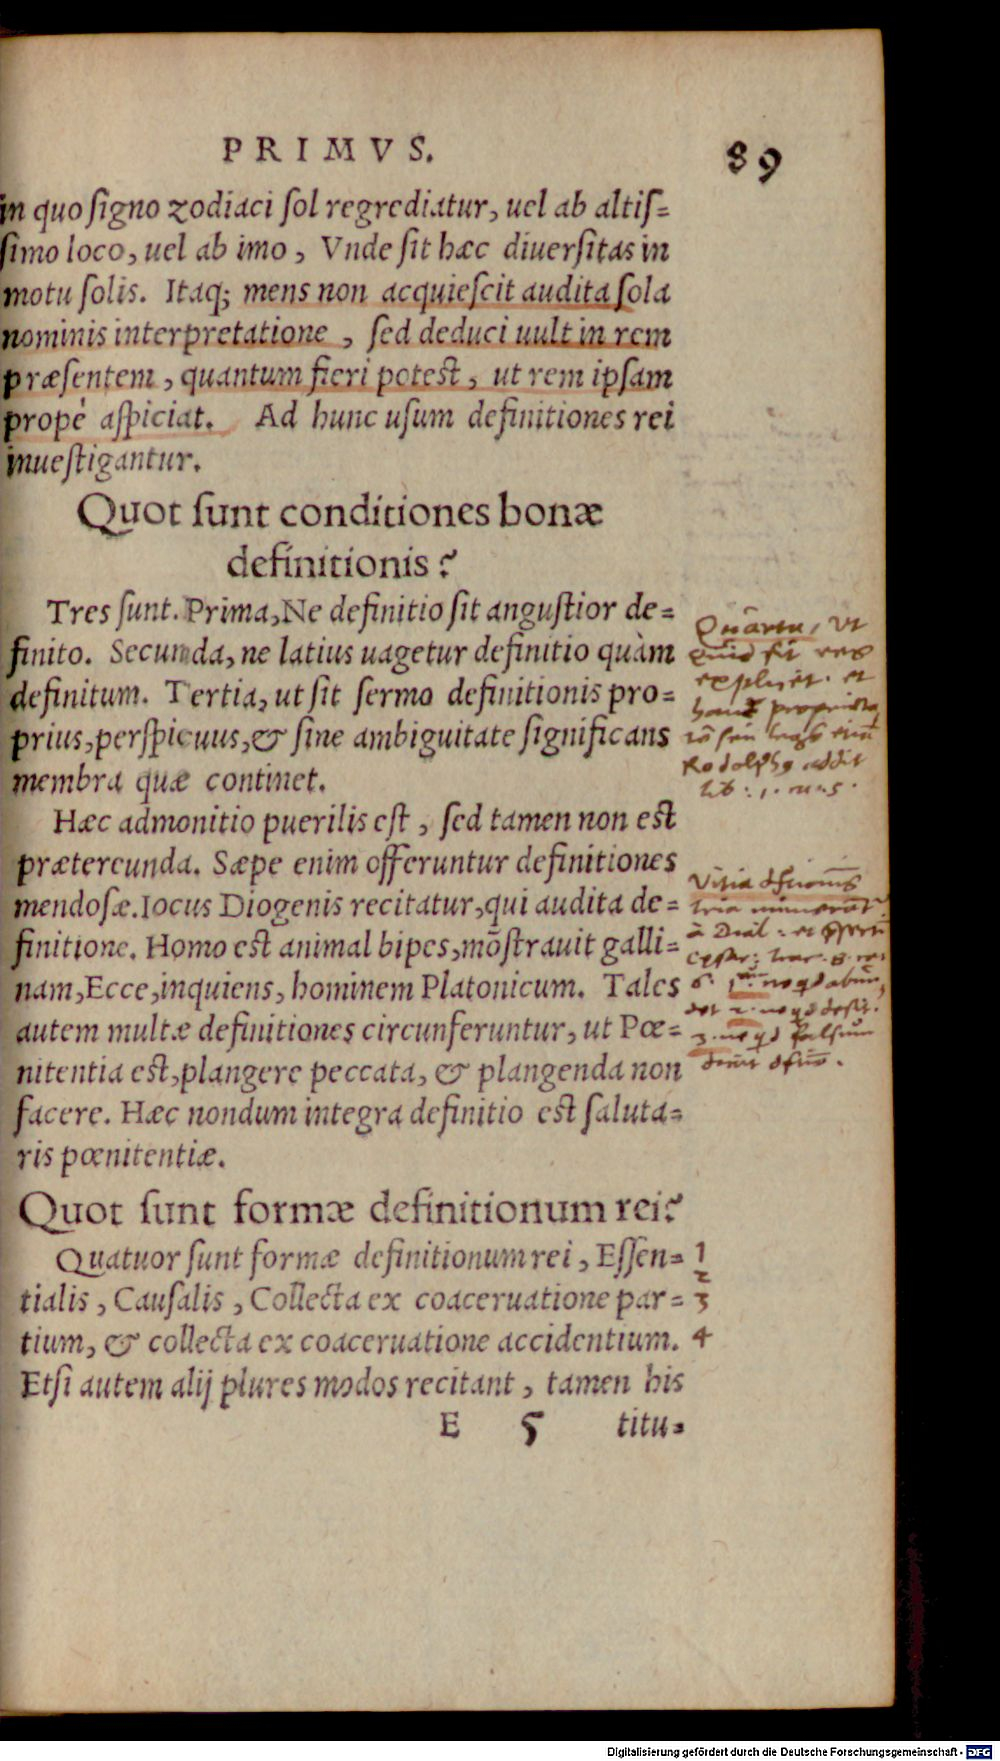 PRIMVS. 89
in quo ſigno zodiaci ſol regrediatur, uel ab altiſ=
ſimo loco, uel ab imo, Vnde ſit hæc diuerſitas in
motu ſolis. Itaq; mens non acquieſcit audita ſola
nominis interpretatione, ſed deduci uult in rem
præſentem, quantum fieri poteſt, ut rem ipſam
propè aſpiciat. Ad hunc uſum definitiones rei
inueſtigantur.
Quot ſunt conditiones bonæ
definitionis?
Tres ſunt. Prima, Ne definitio ſit anguſtior de=
finito. Secunda, ne latius uagetur definitio quàm
definitum. Tertia, ut ſit ſermo definitionis pro=
prius, perſpicuus, & ſine ambiguitate ſignificans
membra quæ continet.
Quarta, Vt
quid sit res
explicet. et
hanc
Rodolph9 addit
lib: 1.
Hæc admonitio puerilis eſt, ſed tamen non eſt
prætereunda. Sæpe enim offeruntur definitiones
mendoſæ. Iocus Diogenis recitatur, qui audita de=
finitione. Homo eſt animal bipes, mõſtrauit galli=
nam, Ecce, inquiens, hominem Platonicum. Tales
autem multæ definitiones circunferuntur, ut Pœ=
nitentia eſt, plangere peccata, & plangenda non
facere. Hæc nondum integra definitio eſt ſaluta=
ris pœnitentiæ.
Vitia
tria
à Dial: et
6.
2. desit.
3. falsum
Quot ſunt formæ definitionum rei?
Quatuor ſunt formæ definitionum rei, Eſſen= 1
2
tialis, Cauſalis, Collecta ex coaceruatione par= 3
tium, & collecta ex coaceruatione accidentium. 4
Etſi autem alij plures modos recitant, tamen his
E 5 titu=
Digitalisierung gefördert durch die Deutsche Forschungsgemeinschaft - DFG